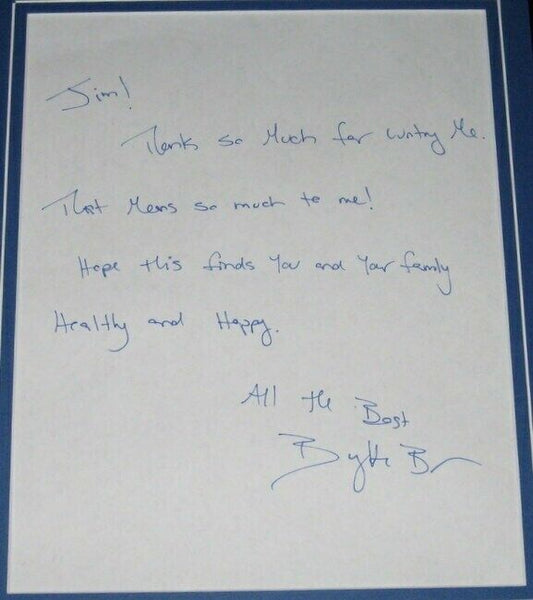 Jim!
Thanks so Much for writing Me.
That Means so much to me!
Hope this finds You and Your family
Healthy and Happy.
All the Best
Blythe